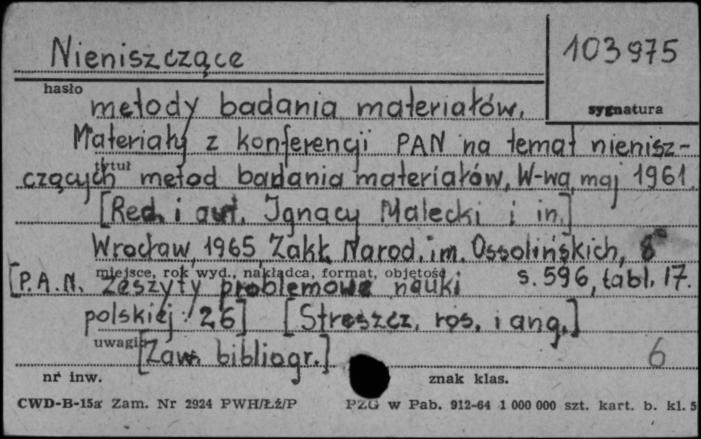 Nieniszczące
103975
hasło
sygnatura
metody badania materiałów.
Materiały z konferencji PAN na temat nienisz-
tytuł
czących metod badania materiałów, W-wa, maj 1961.
[Red. i aut. Ignacy Malecki i in.]
Wrocław, 1965, Zakł. Narod. im. Ossolińskich, 8°
miejsce, rok wyd., nakładca, format, objętość
[P.A.N. Zeszyty problemowe nauki s. 596, tabl. 17.
polskiej. 26] [Streszcz. ros. i ang.]
uwagi
[Zaw. bibliogr.] 6
nr inw. znak klas.
CWD-B-15a Zam. Nr 2924 PWH/Łź/P PZG w Pab. 912-64 1 000 000 szt. kart. b. kl. 5